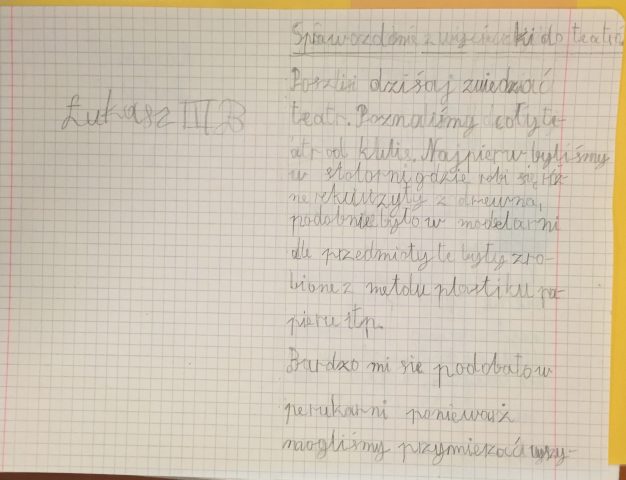 Sprawozdanie z wycieczki do teatru
Poszliśmy dzisiaj zwiedzać
Łukasz III B
teatr. Poznaliśmy cały te-
atr od kulis. Najpierw byliśmy
w stolarni, gdzie robi się róż
ne rekwizyty z drewna,
podobnie było w modelarni
ale przedmioty te były zro-
bione z metalu plastiku pa-
pieru itp.
Bardzo mi się podobało w
perukarni ponieważ
mogliśmy przymierzać wszy-